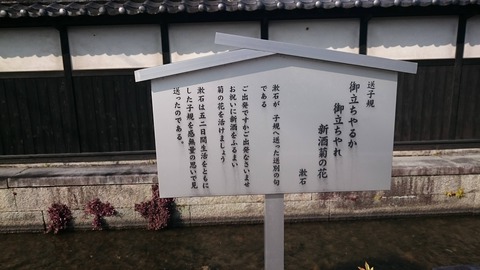 送子規
御立ちやるか
御立ちやれ
新酒菊の花
漱石
漱石が　子規へ送った送別の句
である
ご出発ですかご出発なさいませ
お祝いに新酒をふるまい
菊の花を活けましょう
漱石は五二日間生活をともに
した子規を感無量の思いで見
送ったのである。